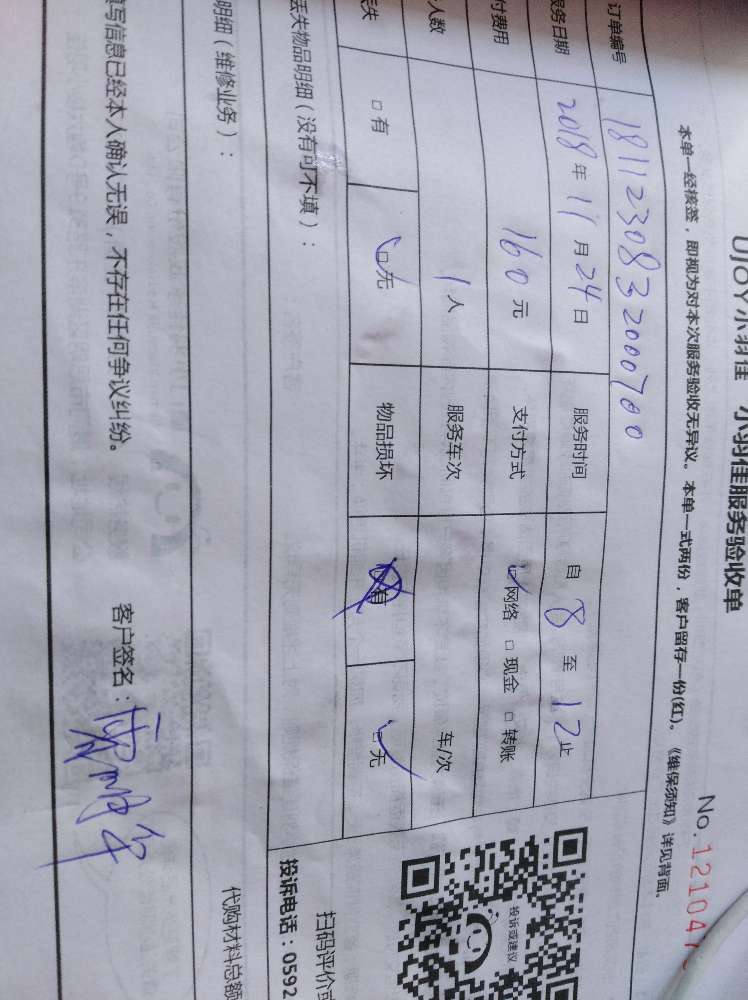 UJOY小羽佳 小羽佳服务验收单
No.121047
本单一经核签，即视为对本次服务验收无异议。本单一式两份，客户留存一份(红)。《维保须知》详见背面。
订单编号 1811230832000700
服务日期 2018年11月24日 服务时间 自8至12止
付费用 160元 支付方式 网络 □现金 □转账
人数 1人 服务车次 车/次
丢失 □有 □无 物品损坏 □有 □无
丢失物品明细（没有可不填）：
明细（维修业务）：
投诉或建议
扫码评价或
投诉电话：0592
代购材料总额
填写信息已经本人确认无误，不存在任何争议纠纷。 客户签名：